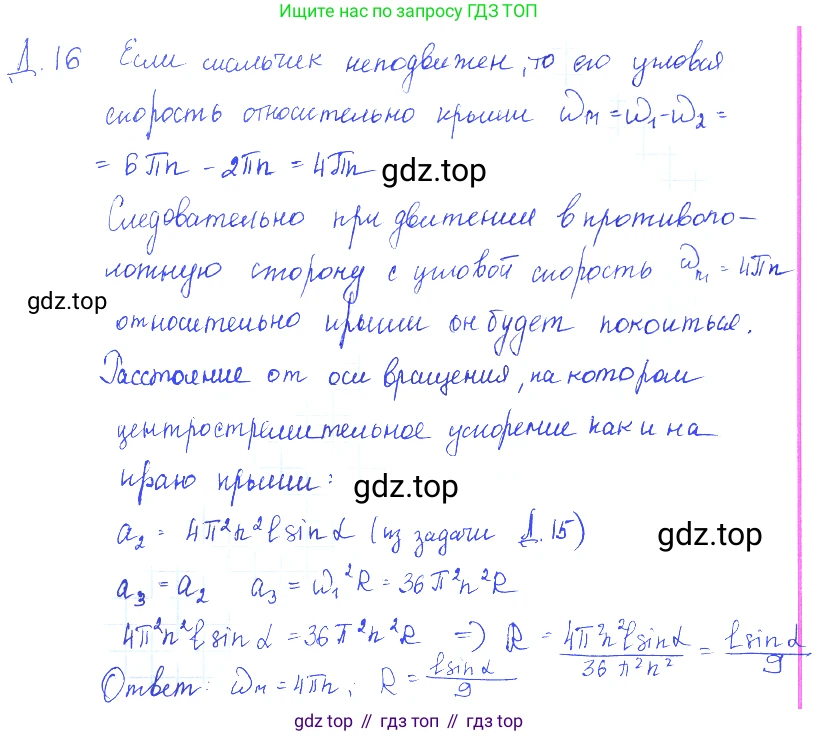 Ищите нас по запросу ГДЗ ТОП
Д.16 Если мальчик неподвижен, то его угловая
скорость относительно крыши ωм = ω₁-ω₂ =
= 6πn - 2πn = 4πn
gdz.top
Следовательно при движении в противопо-
ложную сторону с угловой скорость ωм = 4πn
gdz.top
относительно крыши он будет покоиться.
Расстояние от оси вращения, на котором
центростремительное ускорение как и на
краю крыши:
gdz.top
a₂ = 4π²n²ℓsinα (из задачи Д.15)
gdz.top
a₃ = a₂ a₃ = ω₁²R = 36π²n²R
4π²n²ℓsinα = 36π²n²R => R = 4π²n²ℓsinα/36π²n² = ℓsinα/9
Ответ: ωм = 4πn; R = ℓsinα/9
gdz top // гдз топ // gdz top